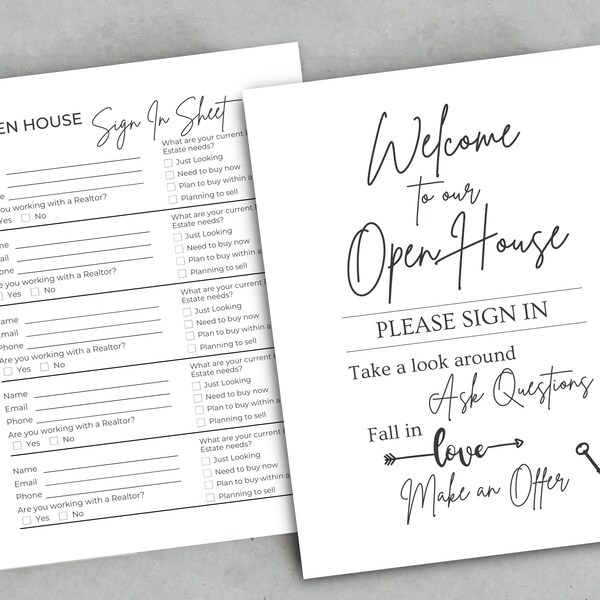 EN HOUSE Sign In Sheet
What are your current
Estate needs?
Just Looking
Need to buy now
Plan to buy within a
Planning to sell
you working with a Realtor?
Yes No
What are your current
Estate needs?
Just Looking
Need to buy now
Plan to buy within a
Planning to sell
me
ail
one
e you working with a Realtor?
Yes No
What are your current
Estate needs?
Just Looking
Need to buy now
Plan to buy within a
Planning to sell
ame
Email
Phone
Are you working with a Realtor?
Yes No
What are your current
Estate needs?
Just Looking
Need to buy now
Plan to buy within a
Planning to sell
Name
Email
Phone
Are you working with a Realtor?
Yes No
What are your current
Estate needs?
Just Looking
Need to buy now
Plan to buy within a
Planning to sell
Name
Email
Phone
Are you working with a Realtor?
Yes No
Welcome
to our
Open House
PLEASE SIGN IN
Take a look around
Ask Questions
Fall in
love
Make an Offer